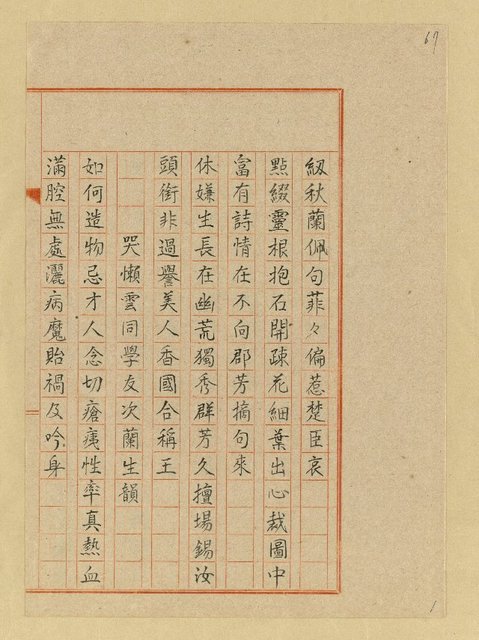 67
紉秋蘭佩句菲々偏惹楚臣哀
點綴靈根抱石開疎花細葉出心裁圖中
富有詩情在不向郡芳摘句來
休嫌生長在幽荒獨秀群芳久擅場錫汝
頭銜非過譽美人香國合稱王
哭懶雲同學友次蘭生韻
如何造物忌才人念切瘡痍性率真熱血
滿腔無處灑病魔貽禍及吟身